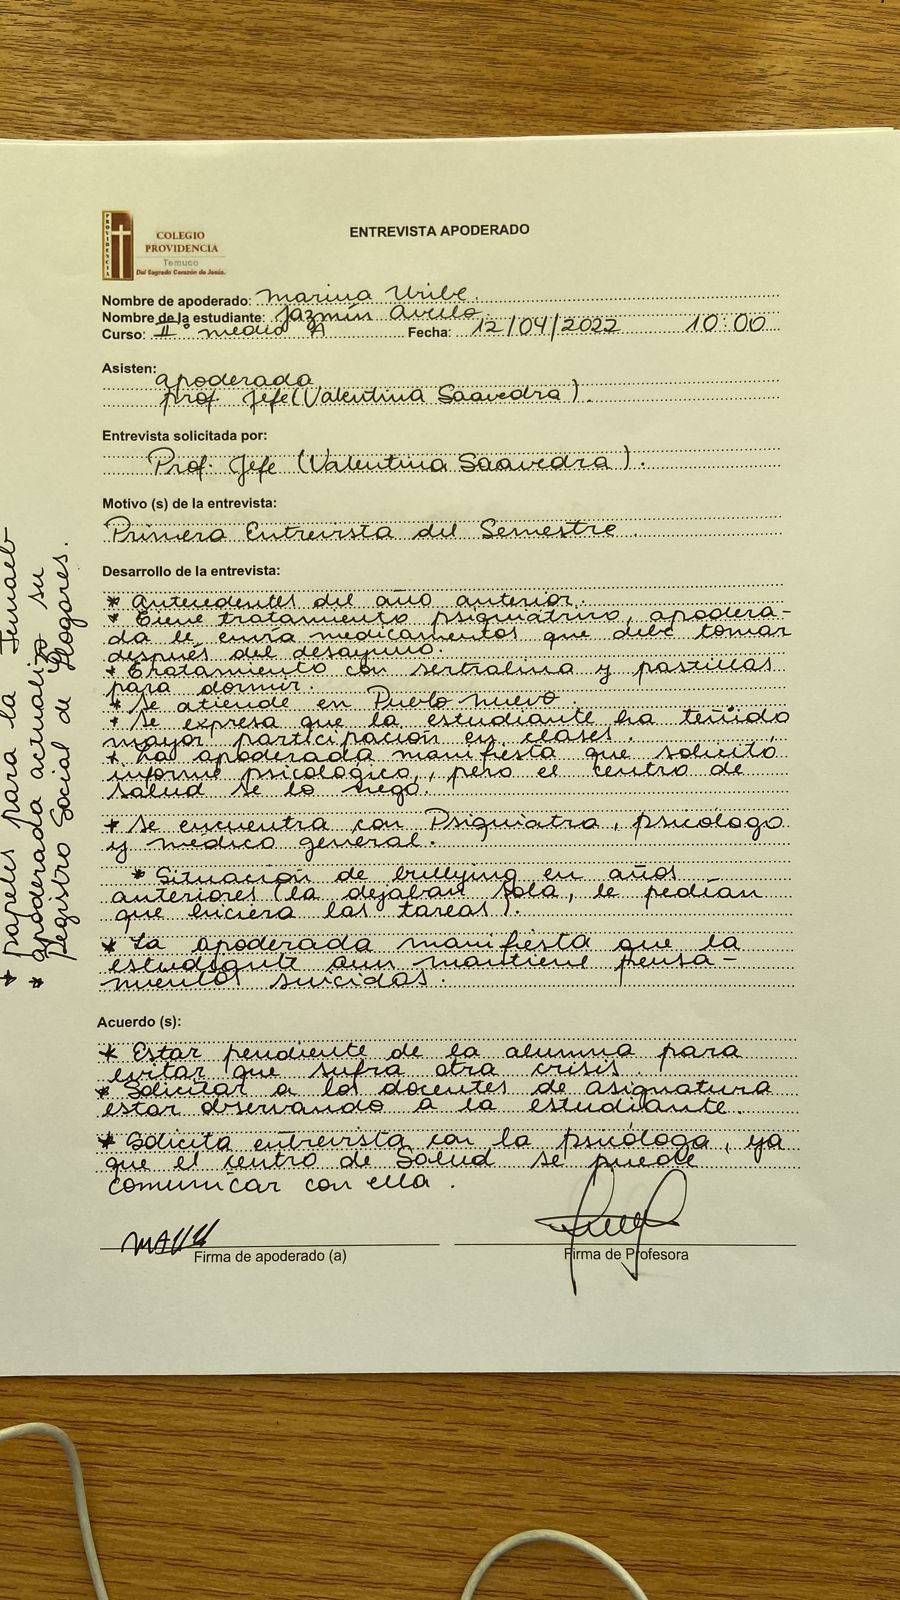 PROVIDENCIA
COLEGIO
PROVIDENCIA
Temuco
Del Sagrado Corazón de Jesús.
ENTREVISTA APODERADO
Nombre de apoderado: Marina Uribe.
Nombre de la estudiante: Jazmín
Curso: II° medio A Fecha: 12/04/2022 10:00
Asisten:
apoderada
prof. Jefe (Valentina Saavedra).
Entrevista solicitada por:
Prof. Jefe (Valentina Saavedra).
Motivo (s) de la entrevista:
Primera Entrevista del Semestre.
Desarrollo de la entrevista:
* Antecedentes del año anterior.
* Tiene tratamiento psiquiátrico, apodera-
da le envía medicamentos que debe tomar
después del desayuno.
* Tratamiento con sertralina y pastillas
para dormir.
* Se atiende en Pueblo nuevo
* Se expresa que la estudiante ha tenido
mayor participación en clases.
* La apoderada manifiesta que solicitó
informe psicológico, pero el centro de
salud se lo negó.
* Se encuentra con Psiquiatra, psicólogo
y médico general.
* Situación de bullying en años
anteriores (la dejaban sola, le pedían
que hiciera las tareas).
* La apoderada manifiesta que la
estudiante aun mantiene pensa-
mientos suicidas.
* papeles para la Junaeb
* apoderada actualizó su
Registro Social de Hogares.
Acuerdo (s):
* Estar pendiente de la alumna para
evitar que sufra otra crisis.
* Solicitar a los docentes de asignatura
estar observando a la estudiante.
* Solicita entrevista con la psicóloga, ya
que el centro de Salud se puede
comunicar con ella.
Firma de apoderado (a)
Firma de Profesora